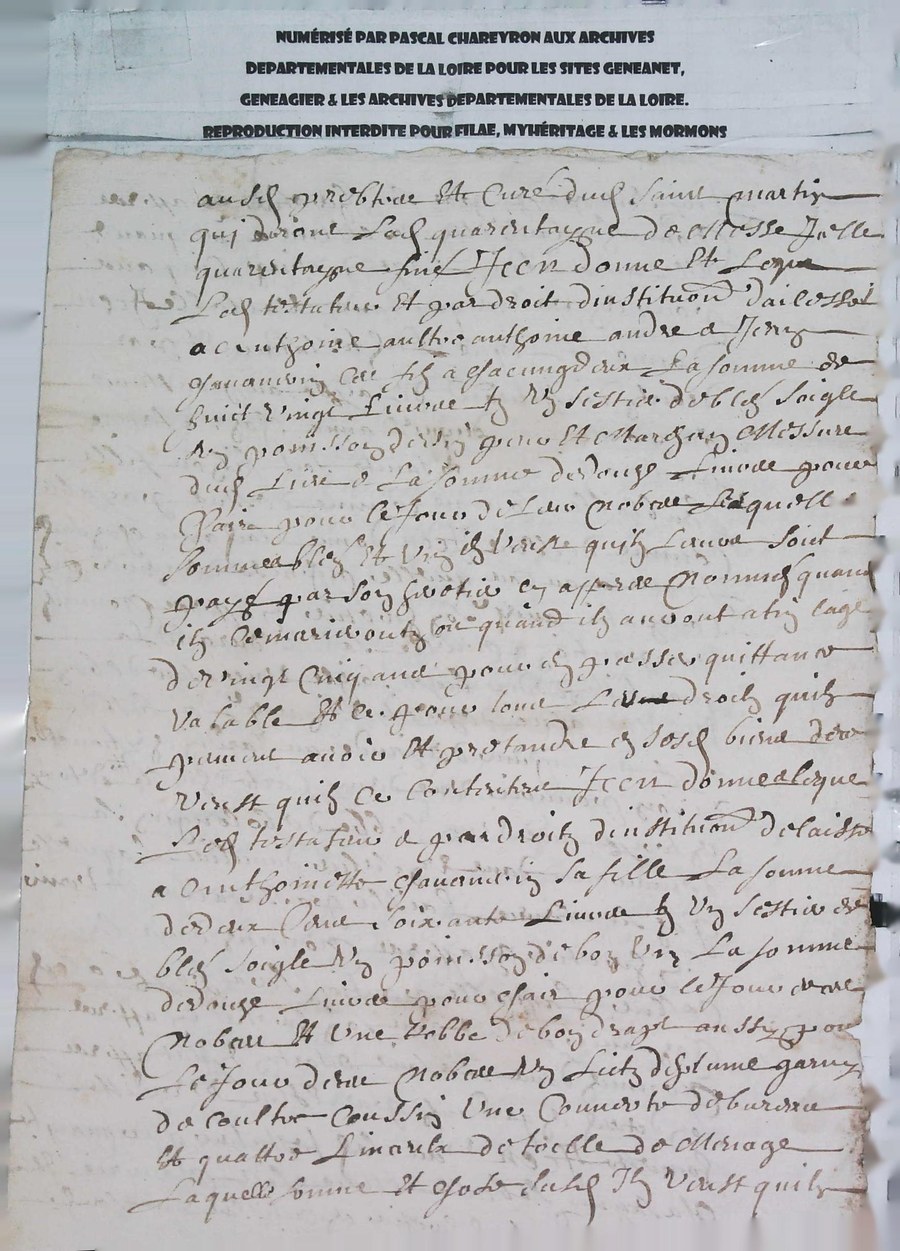 NUMÉRISÉ PAR PASCAL CHAREYRON AUX ARCHIVES
DEPARTEMENTALES DE LA LOIRE POUR LES SITES GENEANET,
GENEAGIER & LES ARCHIVES DEPARTEMENTALES DE LA LOIRE.
REPRODUCTION INTERDITE POUR FILAE, MYHÉRITAGE & LES MORMONS
prebtre Et Curé dud Saint martin
qui lad quarentayne de Messe Jcelle
quarentayne Jtem donne Et Legue
Led testateur Et par droit dinstitution
a Anthoine aultre anthoine andre
a chacung deux La somme de
huict Vingt Livres Vng sestier de bled Soigle
Vng poinsson de vin pur Et Marchand Messure
dud La somme de douze Livres pour
Chair pour le Jour de Leur Nobces Lesquelles
sommes bled Et Vin il Veust quilz Leurs soit
payé par son heretier nommé quand
ilz Ce marieront ou quand ilz auront atin lage
de vingt Cinq ans pour en passer quittance
Valable Et Ce pour tous Leurs droitz quilz
peuvent avoir Et pretandre en sosd biens
Veust quilz Ce Contentent Jtem donne Legue
Led testateur par droitz dinstitution delaisse
a Anthoinette sa fille La somme
de deux Cent soixante Livres Vng Sestier de
bled Soigle Vng poinsson de bon Vin La somme
de douze Livres pour chair pour le Jour de ces
Nobces Et Vne Robbe de bon drapt aussy pour
Le Jour de ces Nobces Vng Lictz de plume garny
de coultre Coussin Vne Couverte de bureau
Et quattre Linceulx de toille de Menage
Laquelle somme Et chose susd Jl Veust quilz